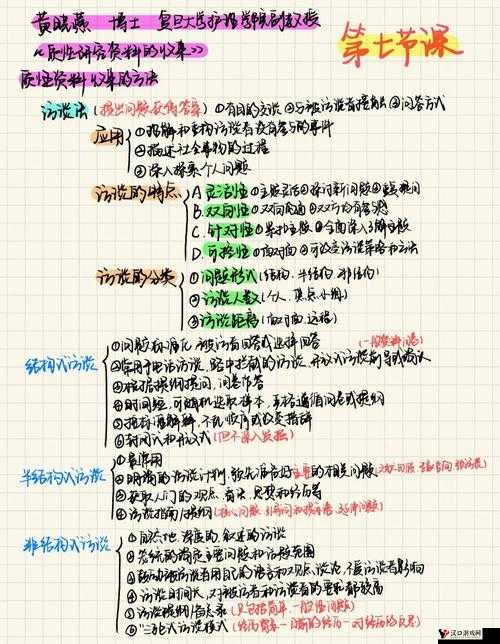 黄晓燕 博士 复旦大学护理学院副教授
第七节课
《质性研究资料的收集》
质性资料收集的方法
访谈法(提出问题,获得答案)①有目的交谈 ②与被访谈者接触 ③问答方式
应用 ①理解和重构访谈者没有参与的事件
②描述社会事物的过程
③深入探索个人问题
访谈的特点 A 灵活性 ①主题灵活 ②探问新问题
B.双向性 ①双向沟通 ②双方均有
C.针对性 ①单独主题 ②全面深入了解主题
D 可控性 ①面对面 ②可改变访谈策略和方法
访谈的分类 ①问题形式(结构、半结构、非结构)
②访谈人数(个人、焦点小组)
③访谈距离(面对面、远程)
结构式访谈 ①问题标准化,被访者回答或选择回答
②常用于电话访谈,路中拦截的访谈,
③根据提纲提问,问卷作答
④时间短,可随机选取样本,严格遵循问卷或提纲
⑤按标准解释,不乱顺序或改变措辞
⑥封闭式和开放式(但不深入发掘)
半结构式访谈 ①最常用
②明确的访谈计划,预先准备好主要的相关问题
③获取人们的观点、看法、思想和经历等
④访谈指南/提纲
非结构式访谈 ①自然地、深度的、叙述的访谈
②笼统的确定主要问题和话题范围
③鼓励被访谈者用自己的语言和观点谈论,不受访谈者影响
④访谈时间长,对被访者和访谈者的要求都较高
⑤访谈提纲/备忘录(只包括简单、一般性问题)
⑥"三轮式"访谈模式
汉口游戏网